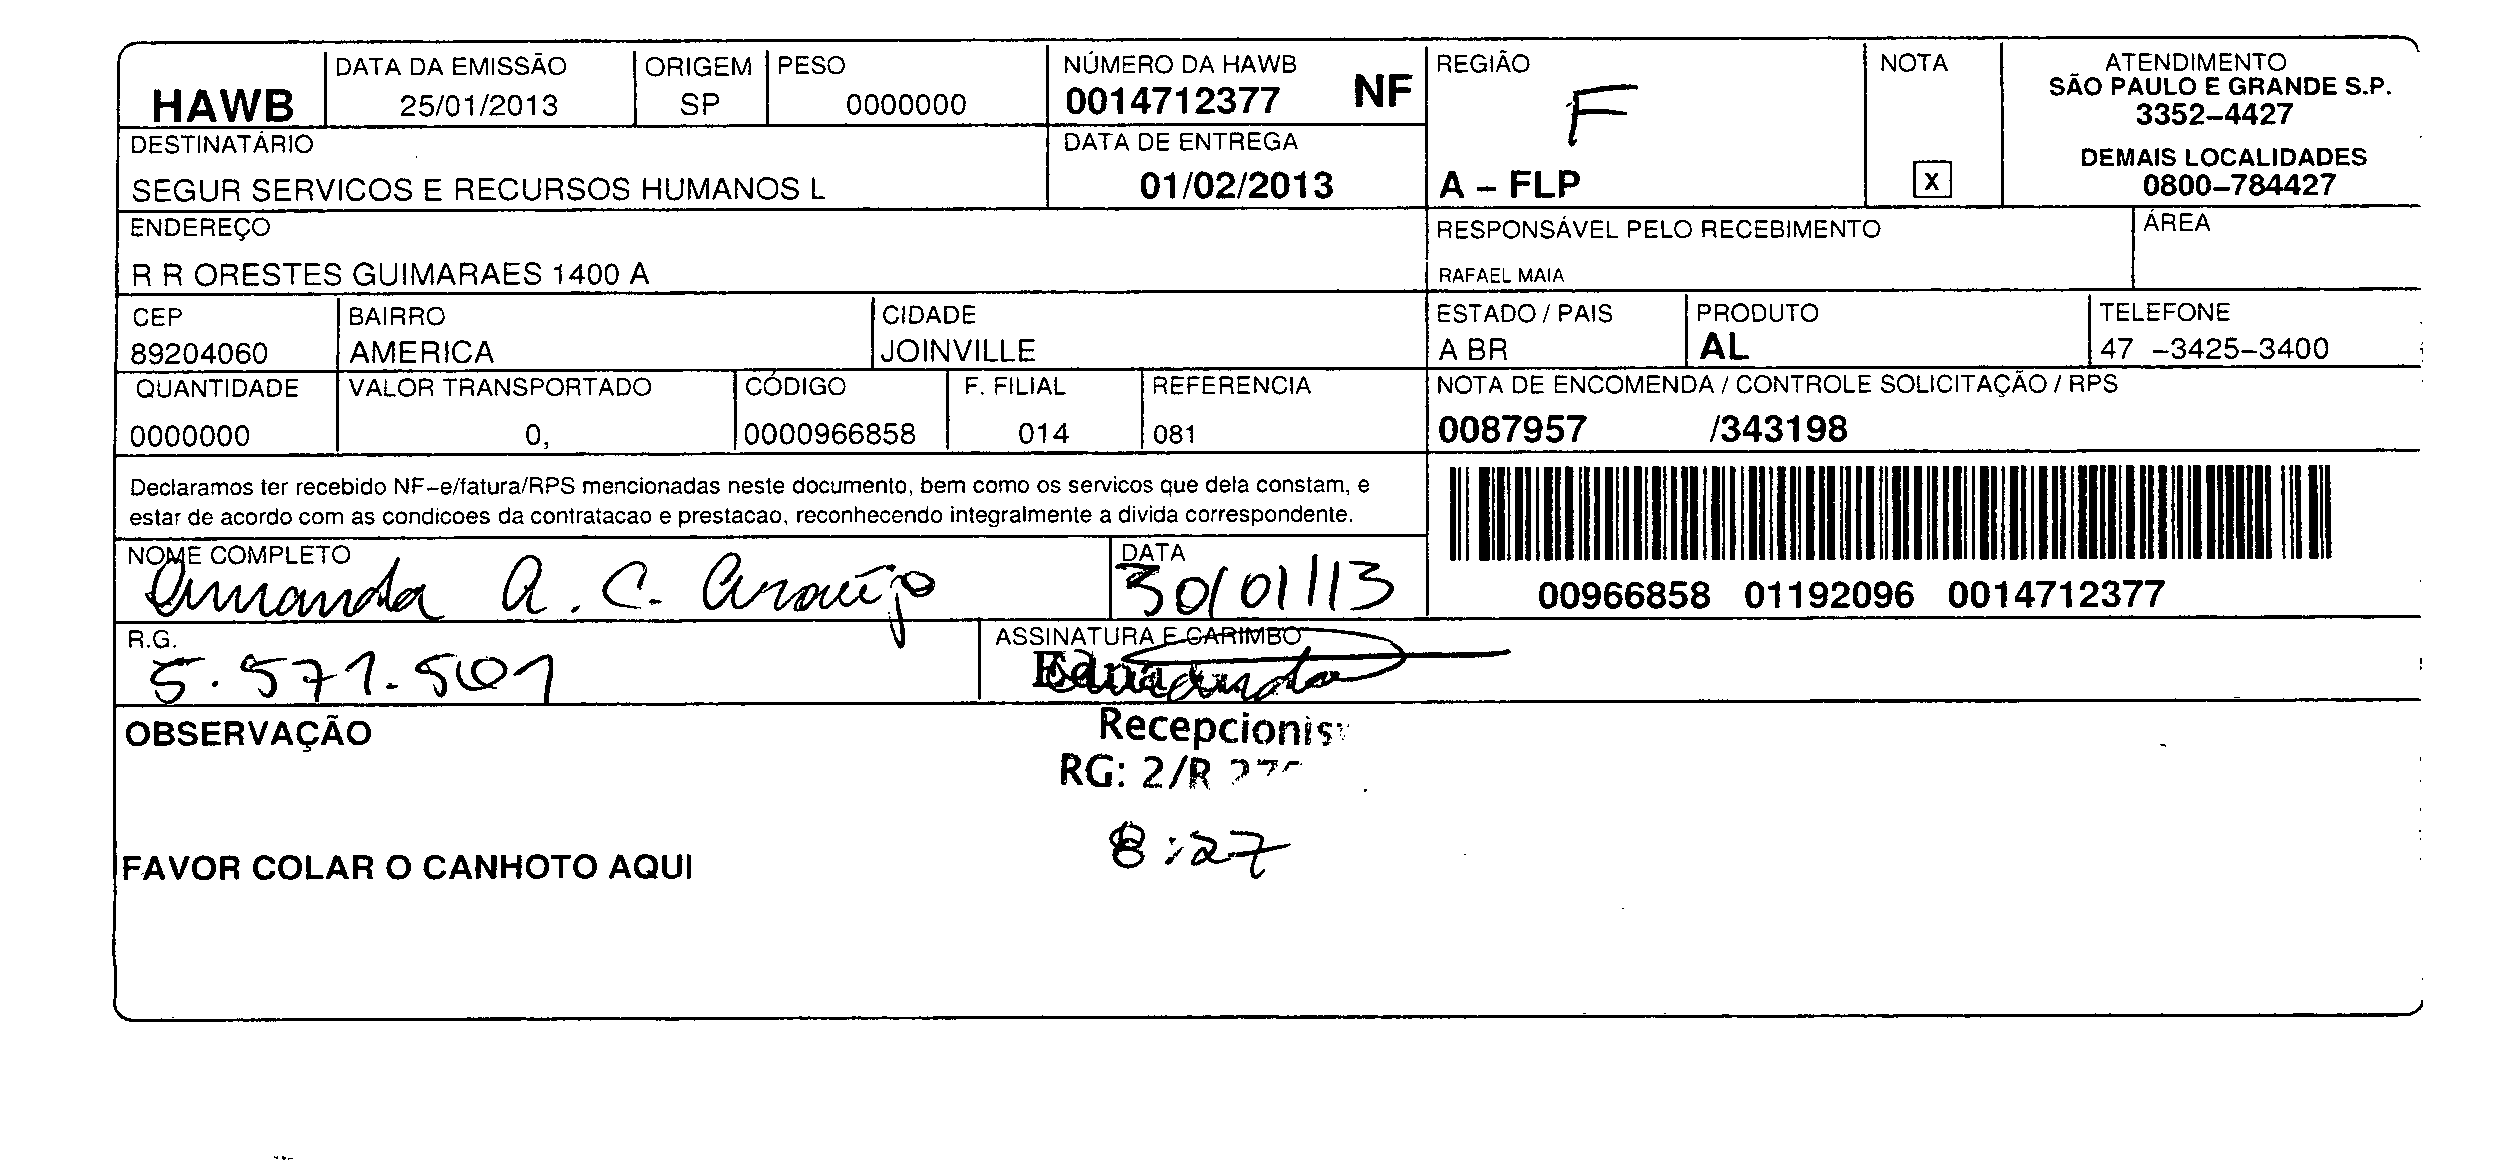 HAWB
DATA DA EMISSÃO
25/01/2013
ORIGEM
SP
PESO
0000000
NÚMERO DA HAWB
0014712377 NF
REGIÃO
F
A – FLP
NOTA
X
ATENDIMENTO
SÃO PAULO E GRANDE S.P.
3352–4427
DEMAIS LOCALIDADES
0800–784427
DESTINATÁRIO
SEGUR SERVICOS E RECURSOS HUMANOS L
DATA DE ENTREGA
01/02/2013
ENDEREÇO
R R ORESTES GUIMARAES 1400 A
RESPONSÁVEL PELO RECEBIMENTO
RAFAEL MAIA
ÁREA
CEP
89204060
BAIRRO
AMERICA
CIDADE
JOINVILLE
ESTADO / PAIS
A BR
PRODUTO
AL
TELEFONE
47 –3425–3400
QUANTIDADE
0000000
VALOR TRANSPORTADO
0,
CÓDIGO
0000966858
F. FILIAL
014
REFERENCIA
081
NOTA DE ENCOMENDA / CONTROLE SOLICITAÇÃO / RPS
0087957 /343198
Declaramos ter recebido NF–e/fatura/RPS mencionadas neste documento, bem como os servicos que dela constam, e
estar de acordo com as condicoes da contratacao e prestacao, reconhecendo integralmente a divida correspondente.
00966858 01192096 0014712377
NOME COMPLETO
Amanda A. C. Araújo
DATA
30/01/13
R.G.
5.571.501
ASSINATURA E CARIMBO
Amanda
Recepcionis
RG: 2/R
OBSERVAÇÃO
8:27
FAVOR COLAR O CANHOTO AQUI